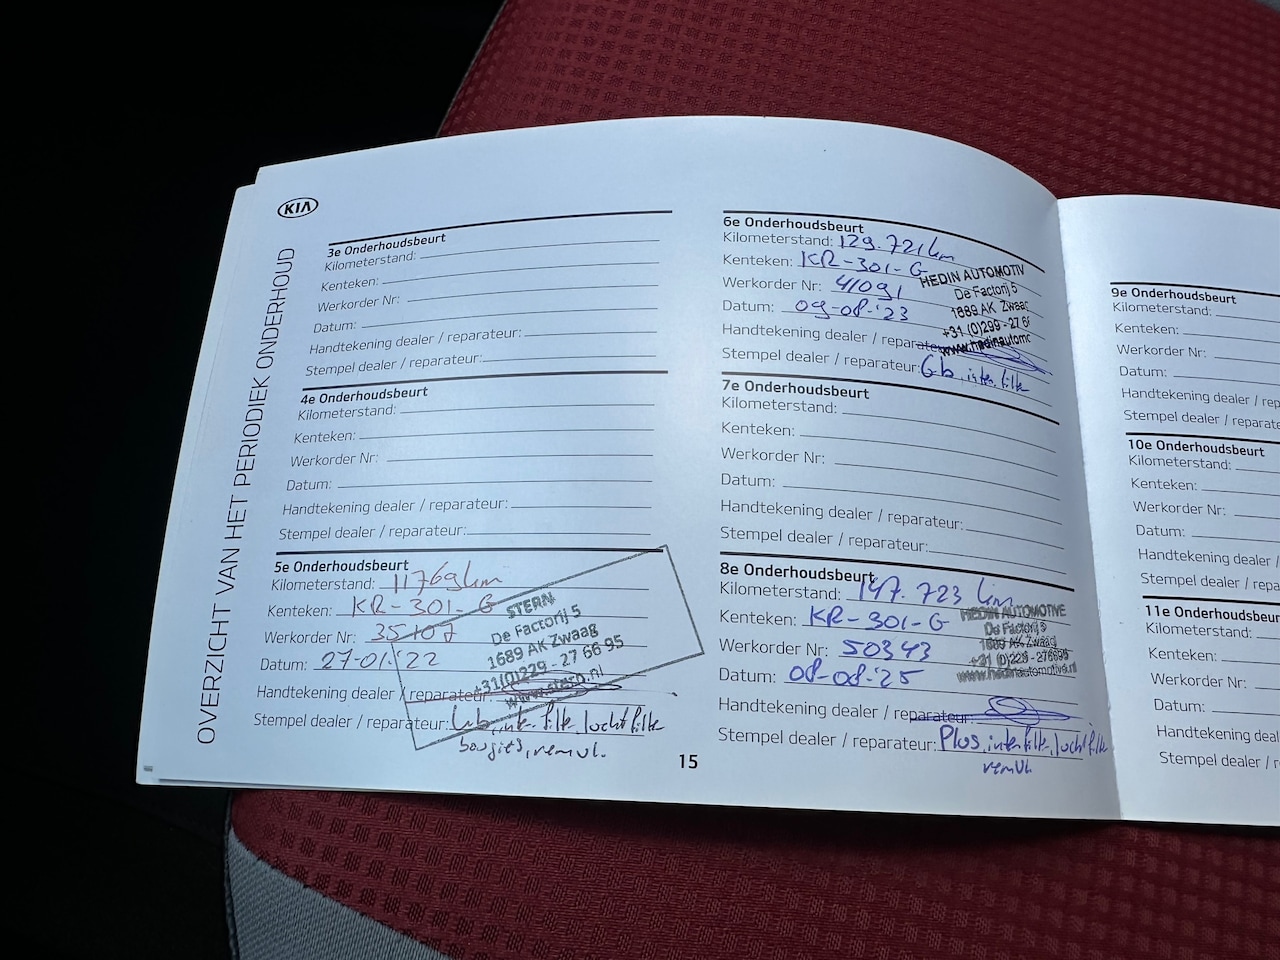 KIA
OVERZICHT VAN HET PERIODIEK ONDERHOUD
3e Onderhoudsbeurt
Kilometerstand:
Kenteken:
Werkorder Nr:
Datum:
Handtekening dealer / reparateur:
Stempel dealer / reparateur:
4e Onderhoudsbeurt
Kilometerstand:
Kenteken:
Werkorder Nr:
Datum:
Handtekening dealer / reparateur:
Stempel dealer / reparateur:
5e Onderhoudsbeurt
Kilometerstand: 11769 km
Kenteken: KR-301-G
Werkorder Nr: 35107
Datum: 27-01-'22
Handtekening dealer / reparateur:
Stempel dealer / reparateur: Gb, inter. filte, luchtfilte
bougies, remvl.
STERN
De Factorij 5
1689 AK Zwaag
+31(0)229 - 27 66 95
www.stern.nl
15
6e Onderhoudsbeurt
Kilometerstand: 129.721 km
Kenteken: KR-301-G
Werkorder Nr: 41091
Datum: 09-08-'23
Handtekening dealer / reparateur:
Stempel dealer / reparateur: Gb, inter. filte
HEDIN AUTOMOTIV
De Factorij 5
1689 AK Zwaag
+31 (0)299 - 27 6
www.hedinautomo
7e Onderhoudsbeurt
Kilometerstand:
Kenteken:
Werkorder Nr:
Datum:
Handtekening dealer / reparateur:
Stempel dealer / reparateur:
8e Onderhoudsbeurt
Kilometerstand: 147.723 km
Kenteken: KR-301-G
Werkorder Nr: 50343
Datum: 08-08-'25
Handtekening dealer / reparateur:
Stempel dealer / reparateur: Plus, interfilte, luchtfilte
remvl.
HEDIN AUTOMOTIVE
De Factorij 5
1689 AK Zwaag
+31 (0)229 - 276695
www.hedinautomotive.nl
9e Onderhoudsbeurt
Kilometerstand:
Kenteken:
Werkorder Nr:
Datum:
Handtekening dealer / rep
Stempel dealer / reparate
10e Onderhoudsbeurt
Kilometerstand:
Kenteken:
Werkorder Nr:
Datum:
Handtekening dealer /
Stempel dealer / repara
11e Onderhoudsbeur
Kilometerstand:
Kenteken:
Werkorder Nr:
Datum:
Handtekening deal
Stempel dealer / r